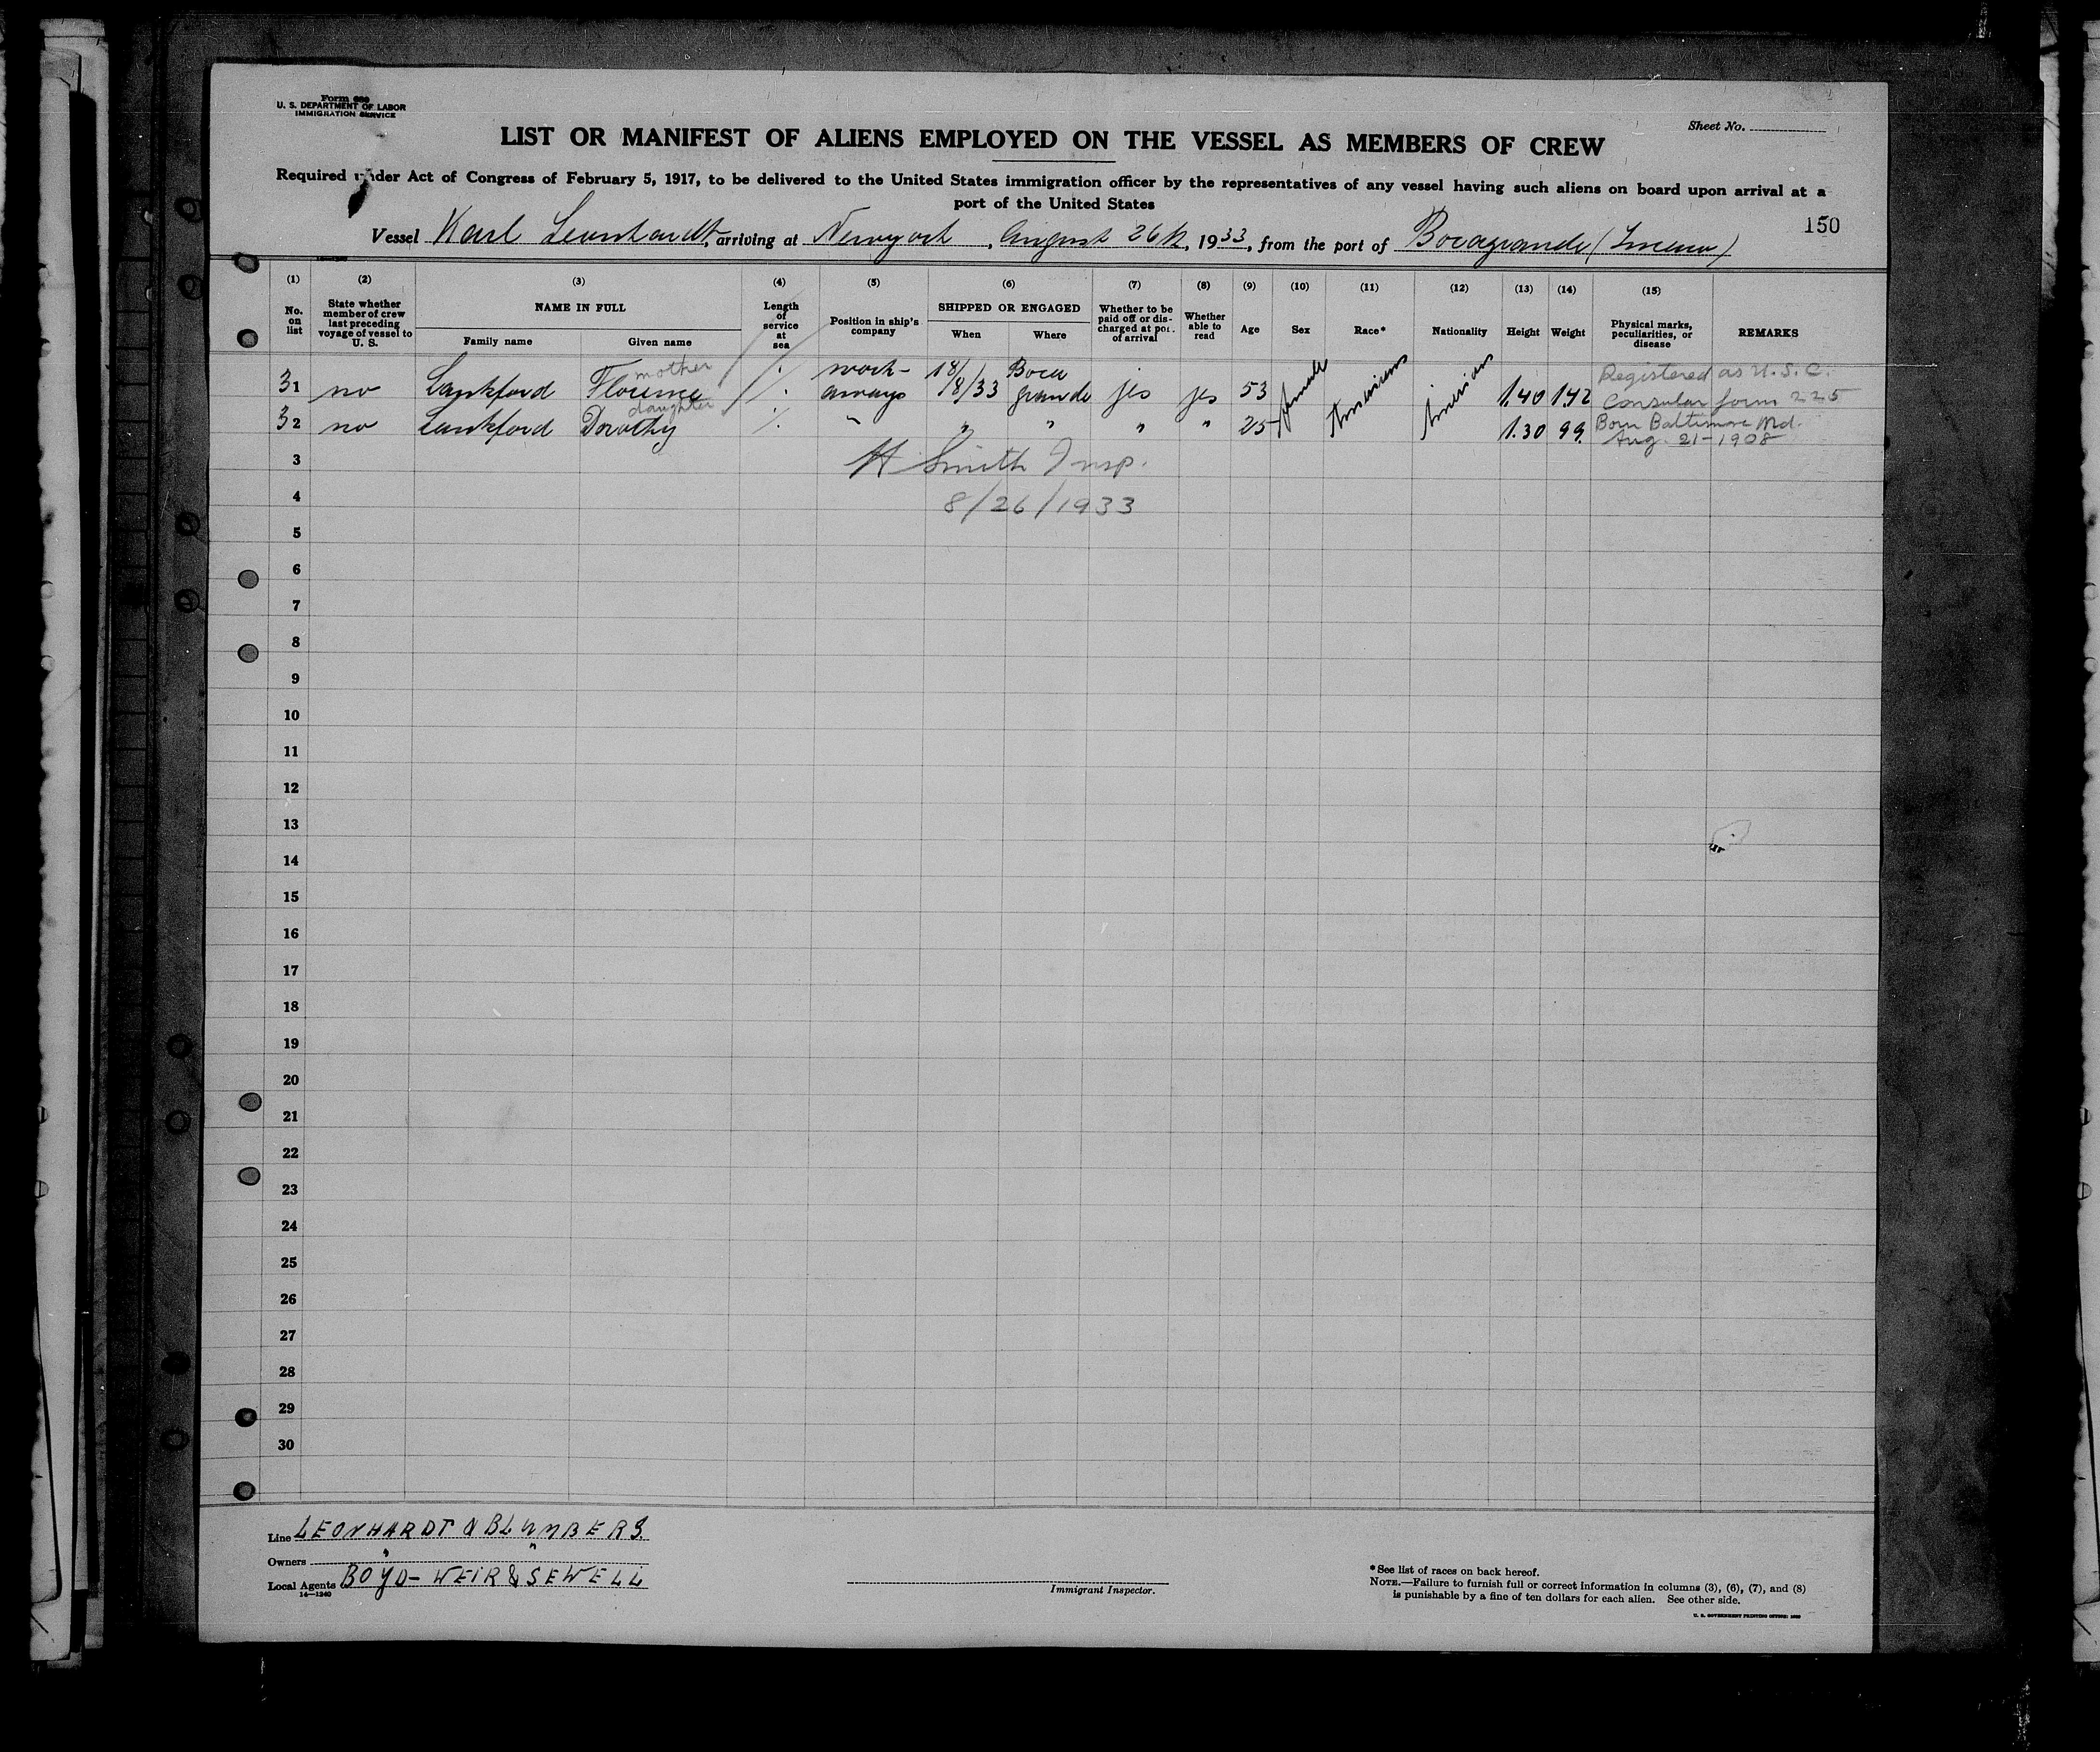 Form 689
U. S. DEPARTMENT OF LABOR
IMMIGRATION SERVICE
Sheet No.
LIST OR MANIFEST OF ALIENS EMPLOYED ON THE VESSEL AS MEMBERS OF CREW
Required under Act of Congress of February 5, 1917, to be delivered to the United States immigration officer by the representatives of any vessel having such aliens on board upon arrival at a
port of the United States
150
Vessel Karl Leonhardt, arriving at Newyork, August 26th, 1933, from the port of Bocagrande
(1) (2) (3) (4) (5) (6) (7) (8) (9) (10) (11) (12) (13) (14) (15)
No. on list State whether member of crew last preceding voyage of vessel to U. S. NAME IN FULL Family name Given name Length of service at sea Position in ship's company SHIPPED OR ENGAGED When Where Whether to be paid off or discharged at port of arrival Whether able to read Age Sex Race* Nationality Height Weight Physical marks, peculiarities, or disease REMARKS
mother
31 no Lankford Florence work-aways 18/8/33 Boca grande yes yes 53 female American American 1.40 142 Registered as U.S.C. Consular form 225
daughter
32 no Lankford Dorothy " " " " " 25 1.30 99 Born Baltimore Md. Aug. 21-1908
3 H Smith Insp.
4 8/26/1933
5
6
7
8
9
10
11
12
13
14
15
16
17
18
19
20
21
22
23
24
25
26
27
28
29
30
Line LEONHARDT & BLUMBERG.
Owners " "
Local Agents BOYD-WEIR & SEWELL
14—1240
Immigrant Inspector.
* See list of races on back hereof.
NOTE.—Failure to furnish full or correct information in columns (3), (6), (7), and (8)
is punishable by a fine of ten dollars for each alien. See other side.